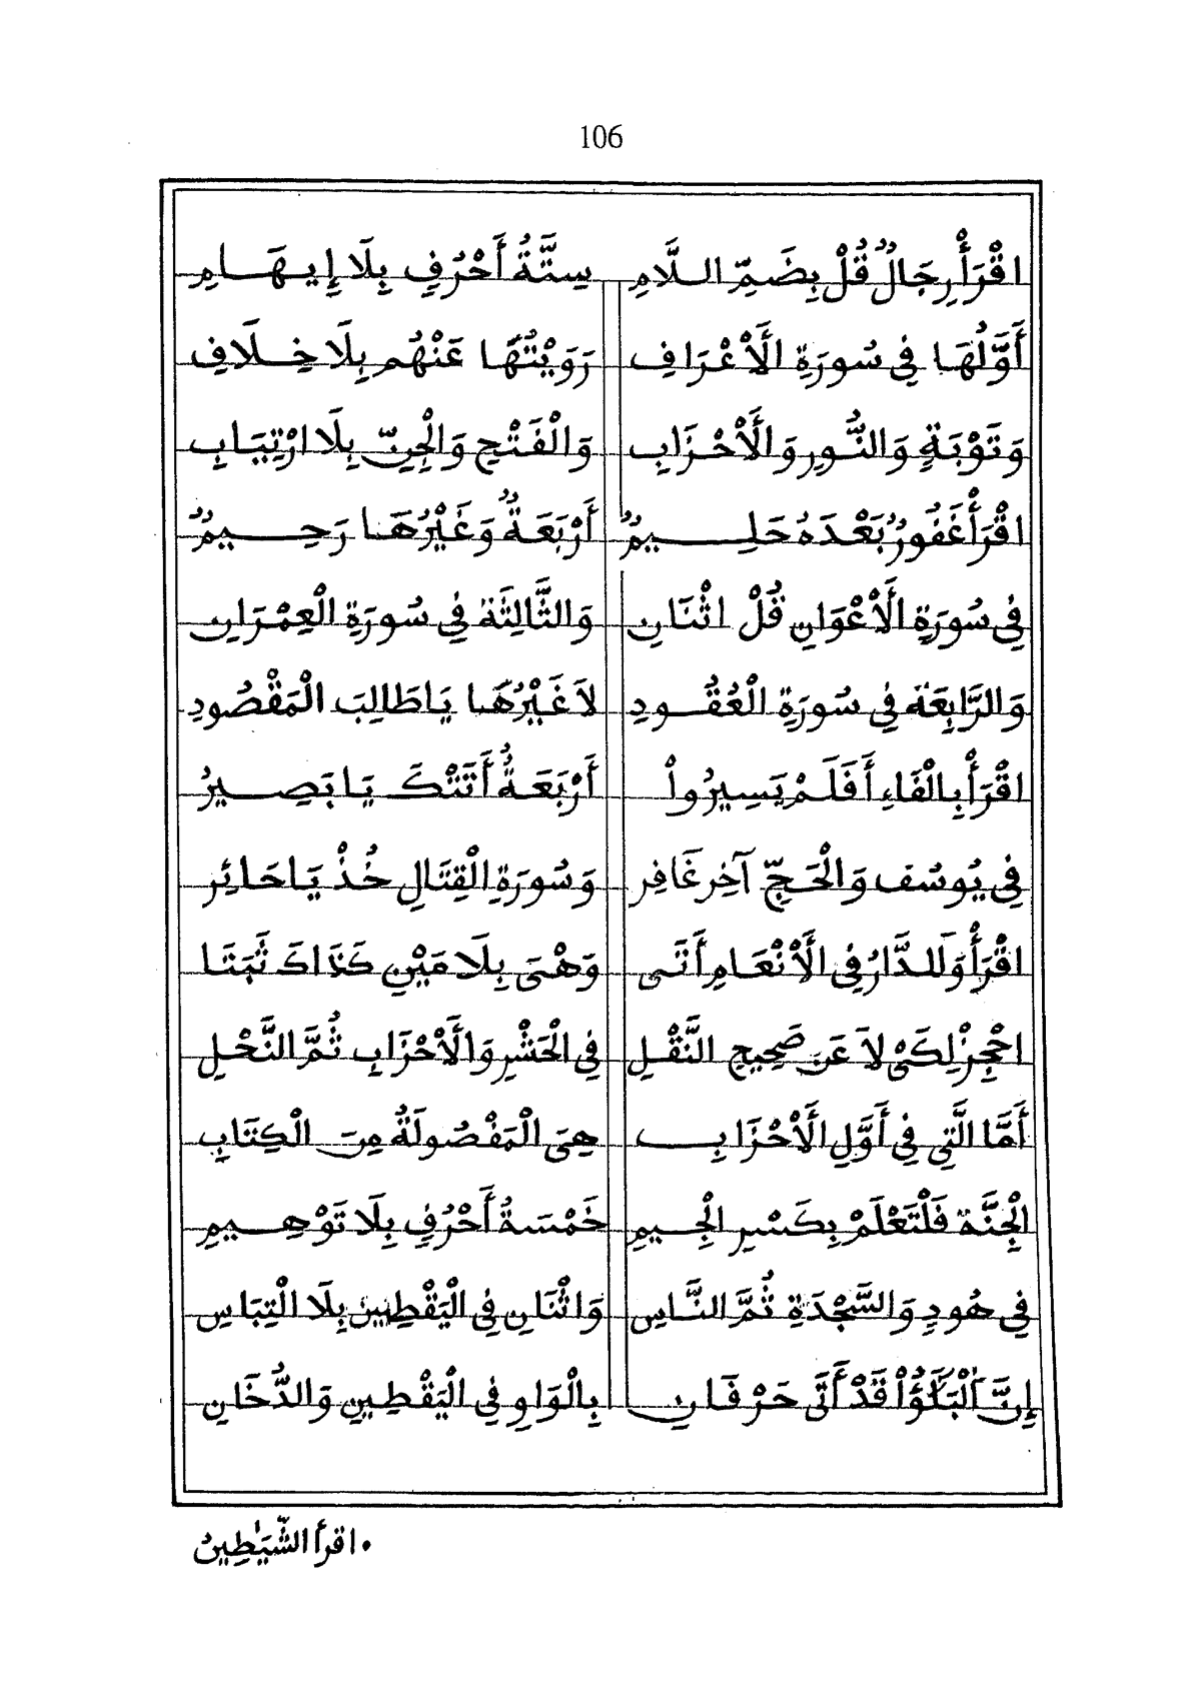 106
اقْرَأْ رِجَالٌ قُلْ بِضَمِّ اللَّامِ سِتَّةُ أَحْرُفٍ بِلَا إِيهَامِ
أَوَّلُهَا فِي سُورَةِ الْأَعْرَافِ رَوَيْتُهَا عَنْهُم بِلَا خِلَافِ
وَتَوْبَةٍ وَالنُّورِ وَالْأَحْزَابِ وَالْفَتْحِ وَالْجِنِّ بِلَا ارْتِيَابِ
اقْرَأْ غَفُورٌ بَعْدَهُ حَلِيمٌ أَرْبَعَةٌ وَغَيْرُهَا رَحِيمٌ
فِي سُورَةِ الْأَعْوَانِ قُلْ اثْنَانِ وَالثَّالِثَةُ فِي سُورَةِ الْعِمْرَانِ
وَالرَّابِعَةُ فِي سُورَةِ الْعُقُودِ لَا غَيْرُهَا يَا طَالِبَ الْمَقْصُودِ
اقْرَأْ بِالْفَاءِ أَفَلَمْ يَسِيرُواْ أَرْبَعَةٌ أَتَتْكَ يَا بَصِيرُ
فِي يُوسُفَ وَالْحَجِّ آخِرِ غَافِرِ وَسُورَةِ الْقِتَالِ خُذْ يَا حَائِرِ
اقْرَأْ وَلَلدَّارُ فِي الْأَنْعَامِ أَتَى وَهْيَ بِلَا مَيْنٍ كَذَاكَ ثَبَتَا
احْجِزْ لِكَيْ لَا عَنَ صَحِيحِ النَّقْلِ فِي الْحَشْرِ وَالْأَحْزَابِ ثُمَّ النَّحْلِ
أَمَّا الَّتِي فِي أَوَّلِ الْأَحْزَابِ هِيَ الْمَفْصُولَةُ مِنَ الْكِتَابِ
الْجِنَّةِ فَلْتَعْلَمْ بِكَسْرِ الْجِيمِ خَمْسَةُ أَحْرُفٍ بِلَا تَوْهِيمِ
فِي هُودٍ وَالسَّجْدَةِ ثُمَّ النَّاسِ وَاثْنَانِ فِي الْيَقْطِينِ بِلَا الْتِبَاسِ
إِنَّ الْبَلَٰٓؤُاْ قَدْ أَتَى حَرْفَانِ بِالْوَاوِ فِي الْيَقْطِينِ وَالدُّخَانِ
• اقرأ الشَّيَٰطِينُ